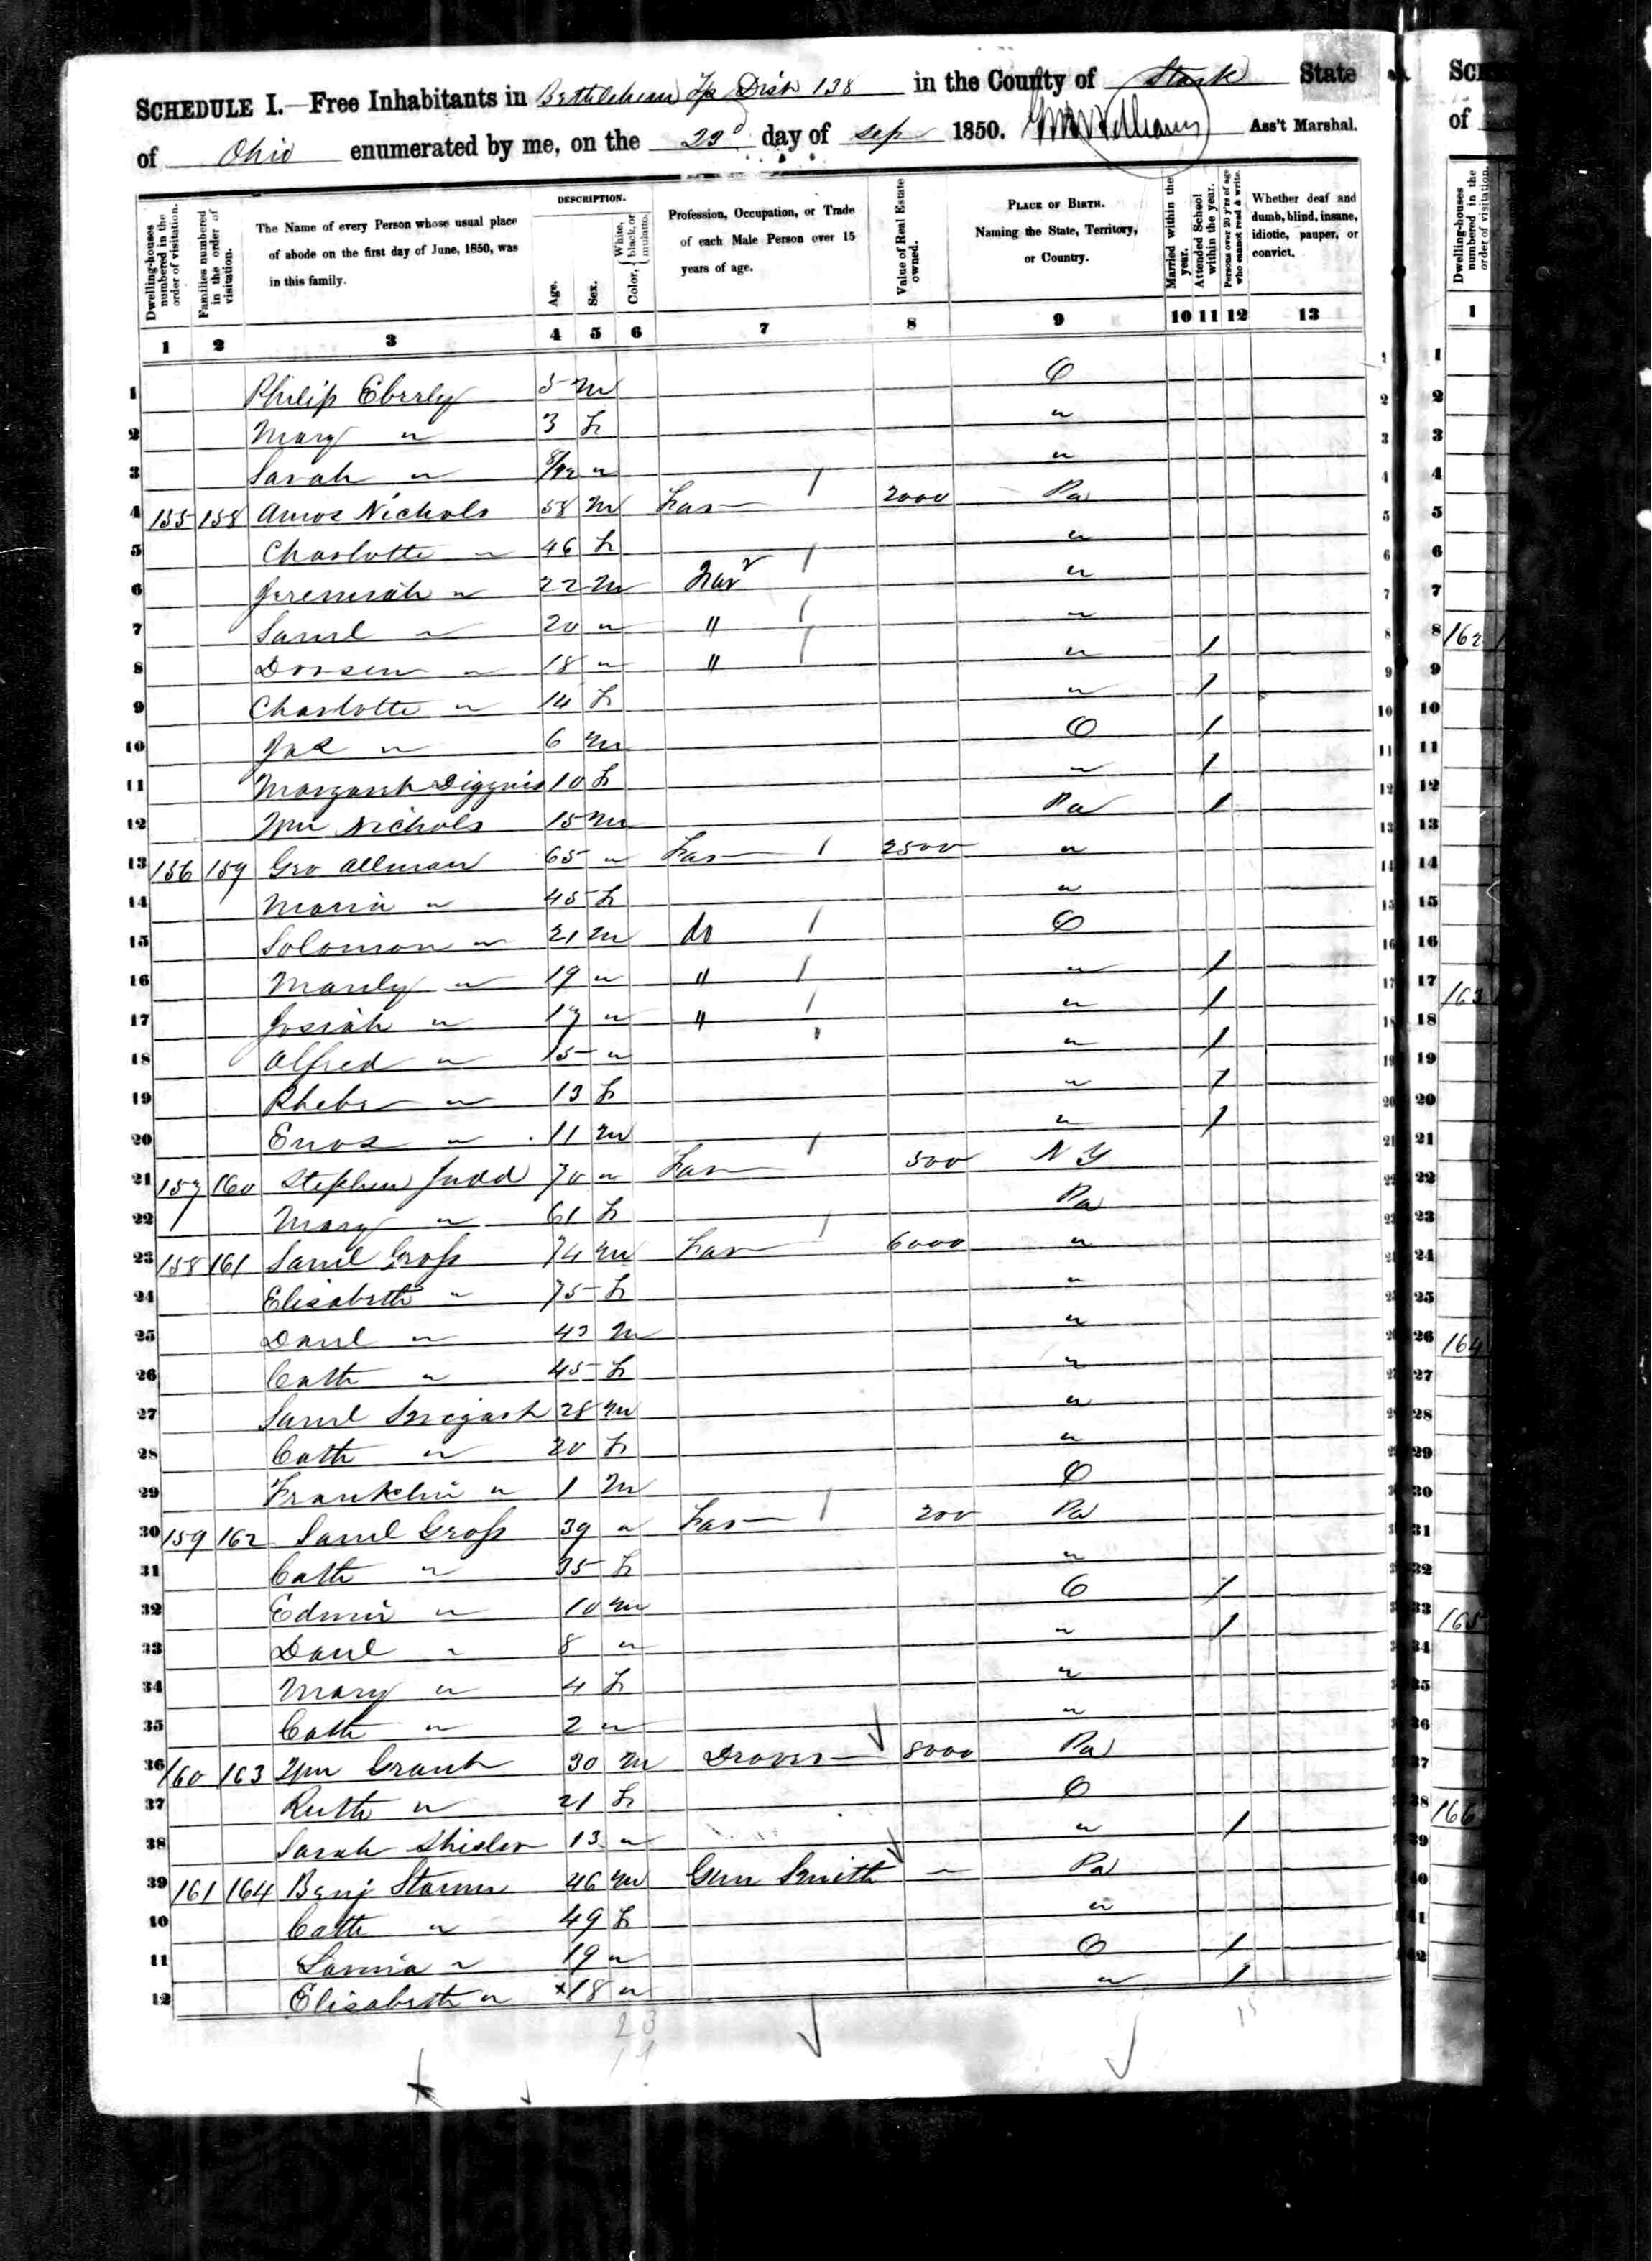 SCHEDULE I.—Free Inhabitants in Bethlehem Tp Dist 138 in the County of Stark State
of Ohio enumerated by me, on the 23d day of Sep 1850. Williams Ass't Marshal.
Dwelling-houses numbered in the order of visitation.
Families numbered in the order of visitation.
The Name of every Person whose usual place of abode on the first day of June, 1850, was in this family.
DESCRIPTION.
Age.
Sex.
Color, { White, black, or mulatto.
Profession, Occupation, or Trade of each Male Person over 15 years of age.
Value of Real Estate owned.
PLACE OF BIRTH. Naming the State, Territory, or Country.
Married within the year.
Attended School within the year.
Persons over 20 y'rs of age who cannot read & write.
Whether deaf and dumb, blind, insane, idiotic, pauper, or convict.
1 2 3 4 5 6 7 8 9 10 11 12 13
1 Philip Eberly 5 m O
2 Mary " 3 f "
3 Sarah " 8/12 " "
4 155 158 Amos Nichols 58 m Far 2000 Pa
5 Charlotte " 46 f "
6 Jeremiah " 22 m Far "
7 Saml " 20 " " "
8 18 " " " 1
9 Charlotte " 14 f " 1
10 Jas " 6 m O 1
11 Margaret 10 f " 1
12 Wm Nichols 15 m Pa 1
13 156 159 Geo Allman 65 " Far 2500 "
14 Maria " 45 f "
15 Solomon " 21 m do O
16 " 19 " " " 1
17 Josiah " 17 " " " 1
18 Alfred " 15 " " 1
19 Phebe " 13 f " 1
20 Enos " 11 m " 1
21 157 160 Stephen Judd 70 " Far 500 N Y
22 Mary " 61 f Pa
23 158 161 Saml Gross 74 m Far 6000 "
24 Elisabeth " 75 f "
25 Danl " 43 m "
26 Cath " 45 f "
27 Saml 28 m "
28 Cath " 20 f "
29 Franklin " 1 m O
30 159 162 Saml Gross 39 " Far 200 Pa
31 Cath " 35 f "
32 Edwin " 10 m O 1
33 Danl " 8 " " 1
34 Mary " 4 f "
35 Cath " 2 " "
36 160 163 Wm 30 m Drover 8000 Pa
37 Ruth " 21 f O
38 Sarah Shisler 13 " " 1
39 161 164 Benj 46 m Gun Smith – Pa
10 Cath " 49 f "
11 Lavina " 19 " O 1
12 Elisabeth " 18 " " 1